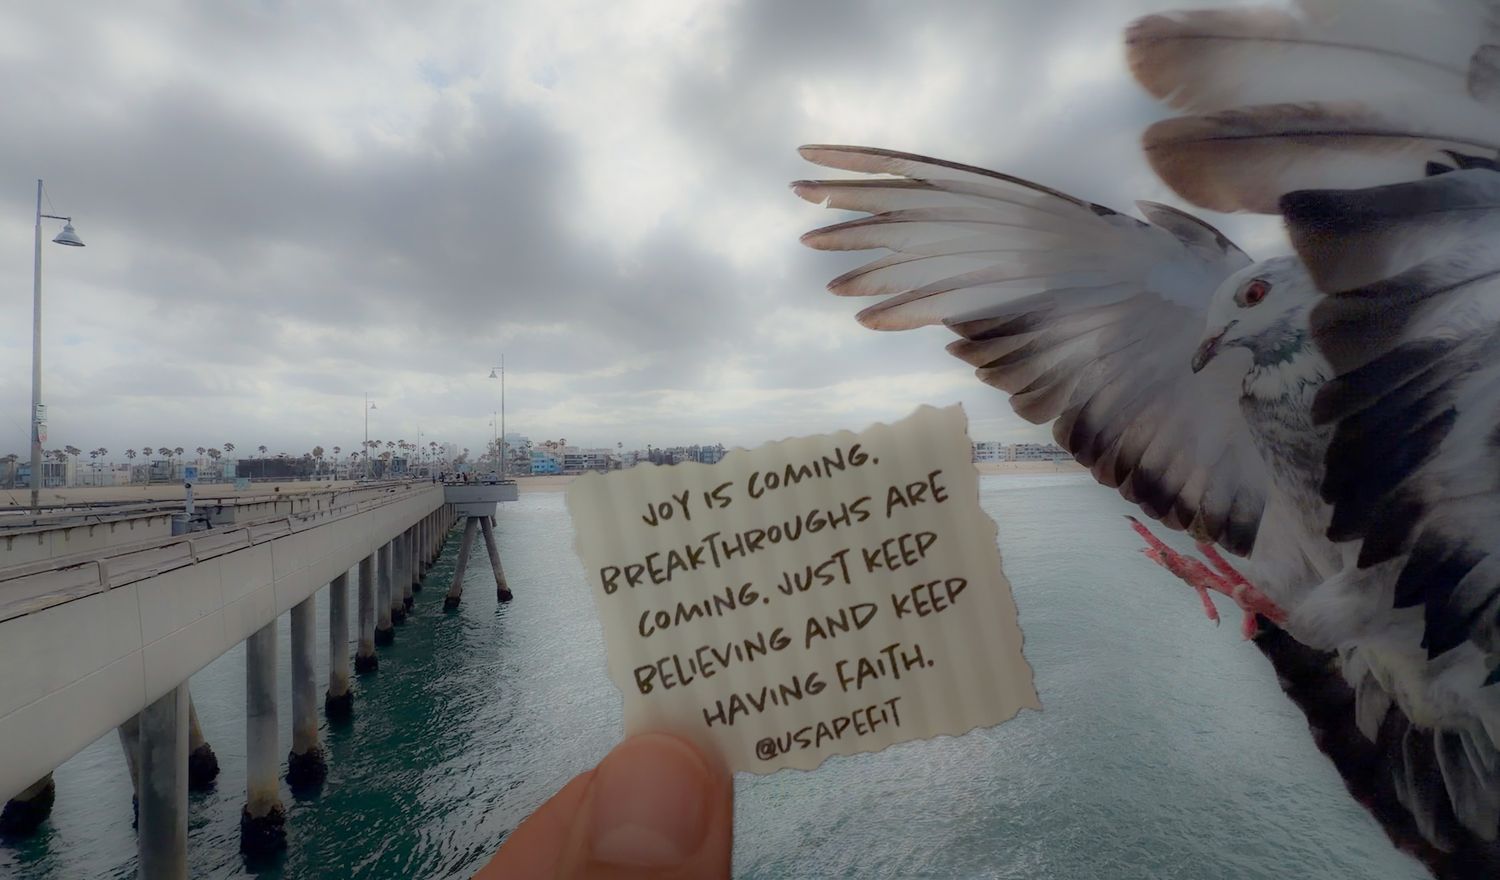 JOY IS COMING.
BREAKTHROUGHS ARE
COMING. JUST KEEP
BELIEVING AND KEEP
HAVING FAITH.
@USAPEFIT